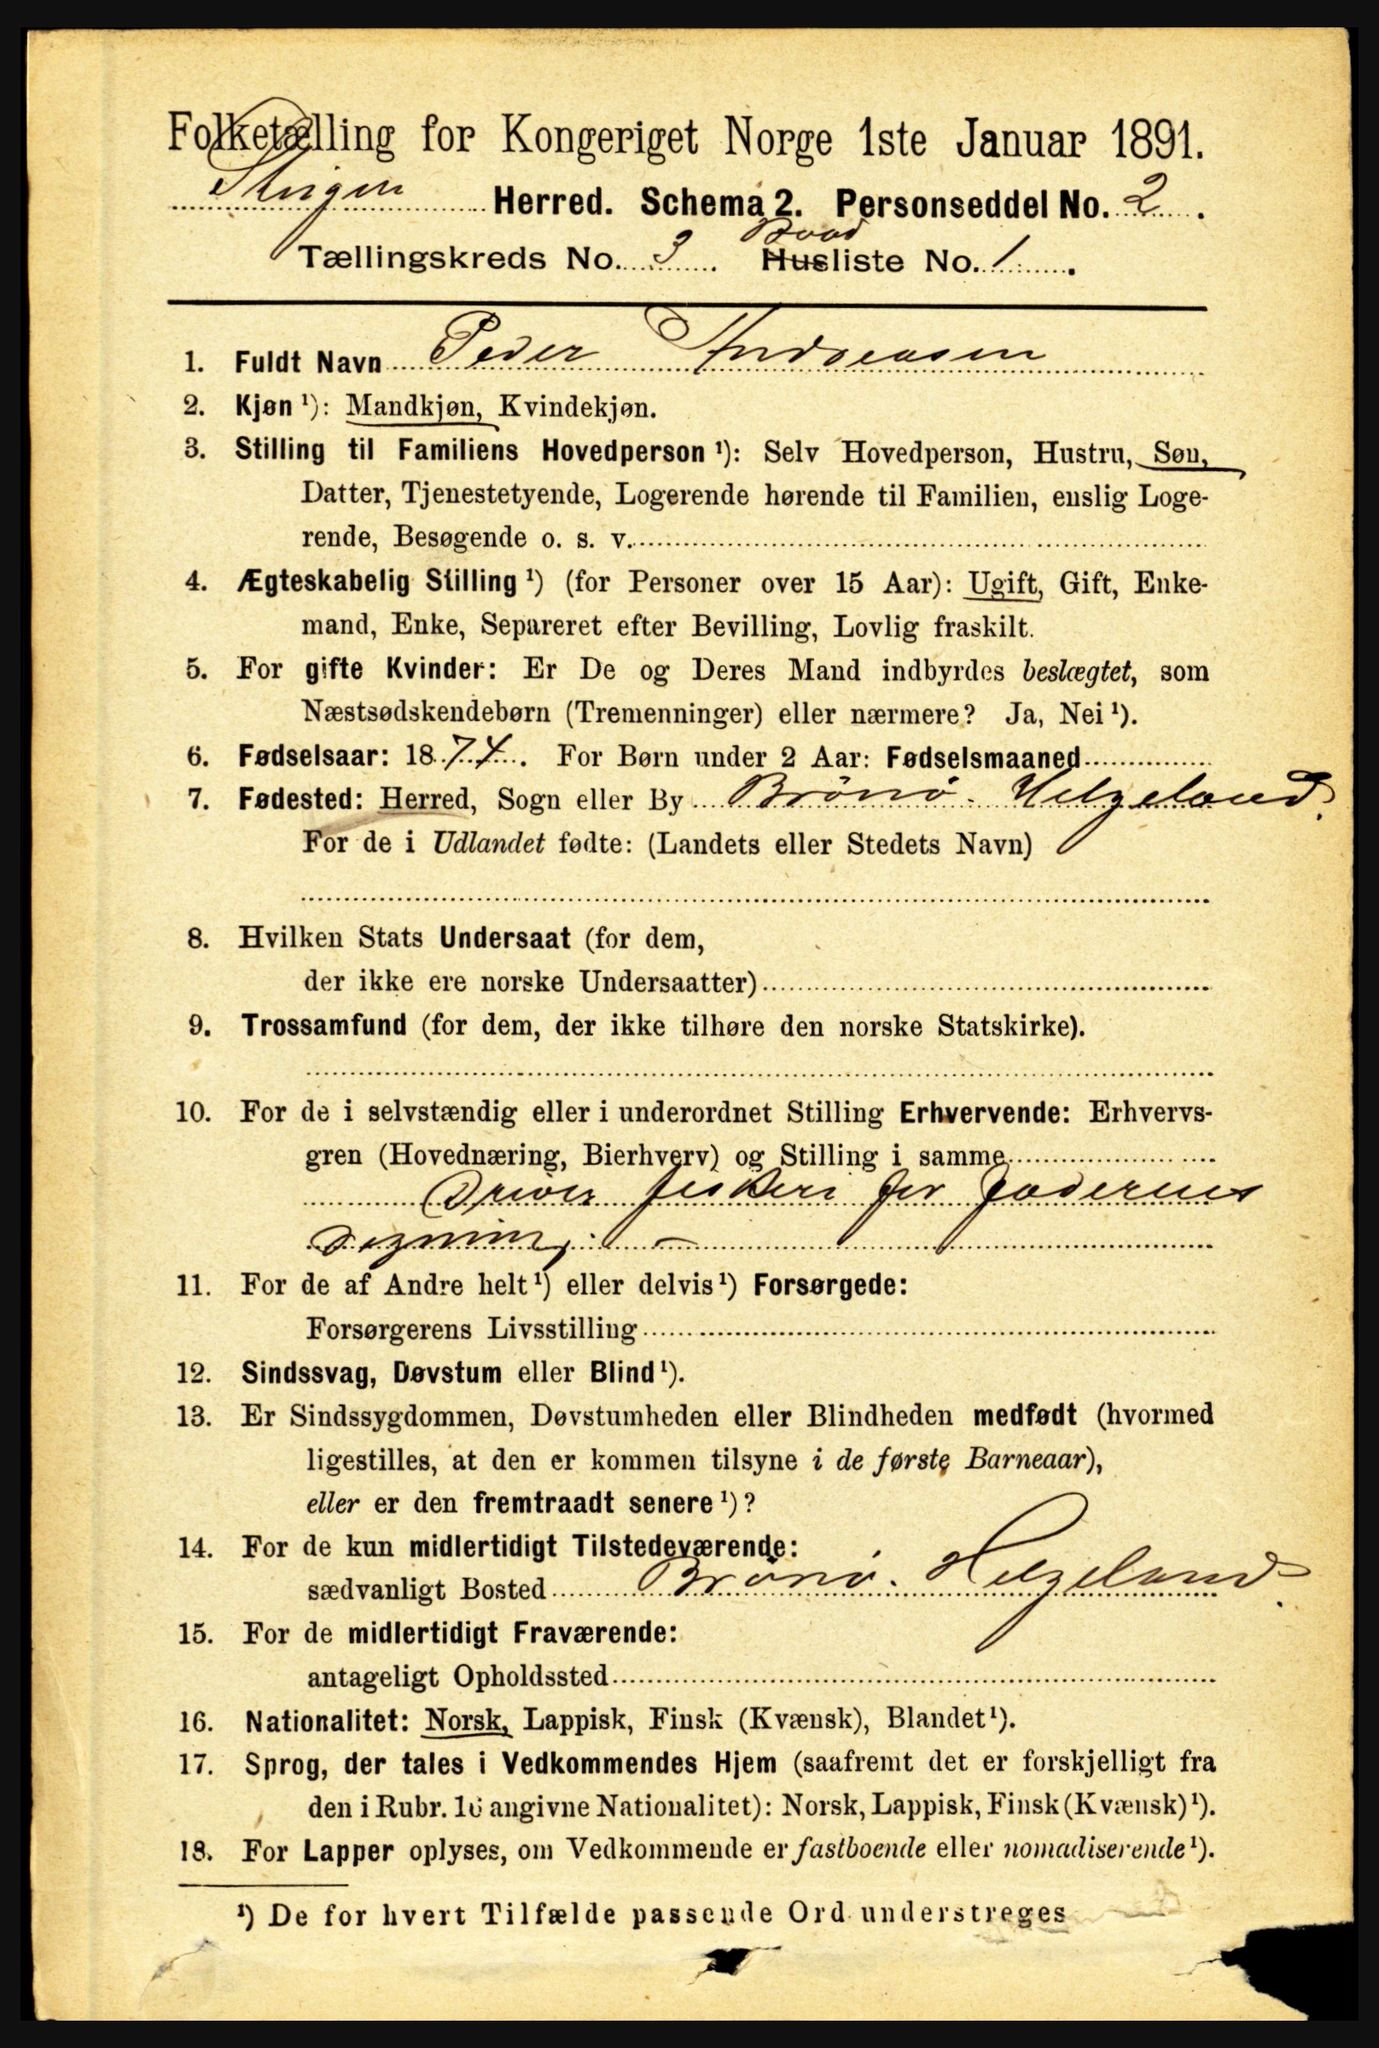 Folketælling for Kongeriget Norge 1ste Januar 1891.
Steigen Herred. Schema 2. Personseddel No. 2.
Baad
Tællingskreds No. 3. Husliste No. 1.
1. Fuldt Navn Peder Andreasen
2. Kjøn ¹): Mandkjøn, Kvindekjøn.
3. Stilling til Familiens Hovedperson ¹): Selv Hovedperson, Hustru, Søn,
Datter, Tjenestetyende, Logerende hørende til Familien, enslig Loge-
rende, Besøgende o. s. v.
4. Ægteskabelig Stilling ¹) (for Personer over 15 Aar): Ugift, Gift, Enke-
mand, Enke, Separeret efter Bevilling, Lovlig fraskilt.
5. For gifte Kvinder: Er De og Deres Mand indbyrdes beslægtet, som
Næstsødskendebørn (Tremenninger) eller nærmere? Ja, Nei ¹).
6. Fødselsaar: 1874. For Børn under 2 Aar: Fødselsmaaned
7. Fødested: Herred, Sogn eller By Brønø. Helgeland.
For de i Udlandet fødte: (Landets eller Stedets Navn)
8. Hvilken Stats Undersaat (for dem,
der ikke ere norske Undersaatter)
9. Trossamfund (for dem, der ikke tilhøre den norske Statskirke).
10. For de i selvstændig eller i underordnet Stilling Erhvervende: Erhvervs-
gren (Hovednæring, Bierhverv) og Stilling i samme
Driver fiskeri for faderens
regning. —
11. For de af Andre helt ¹) eller delvis ¹) Forsørgede:
Forsørgerens Livsstilling
12. Sindssvag, Døvstum eller Blind ¹).
13. Er Sindssygdommen, Døvstumheden eller Blindheden medfødt (hvormed
ligestilles, at den er kommen tilsyne i de første Barneaar),
eller er den fremtraadt senere ¹)?
14. For de kun midlertidigt Tilstedeværende:
sædvanligt Bosted Brønø. Helgeland.
15. For de midlertidigt Fraværende:
antageligt Opholdssted
16. Nationalitet: Norsk, Lappisk, Finsk (Kvænsk), Blandet ¹).
17. Sprog, der tales i Vedkommendes Hjem (saafremt det er forskjelligt fra
den i Rubr. 16 angivne Nationalitet): Norsk, Lappisk, Finsk (Kvænsk) ¹).
18. For Lapper oplyses, om Vedkommende er fastboende eller nomadiserende ¹).
¹) De for hvert Tilfælde passende Ord understreges